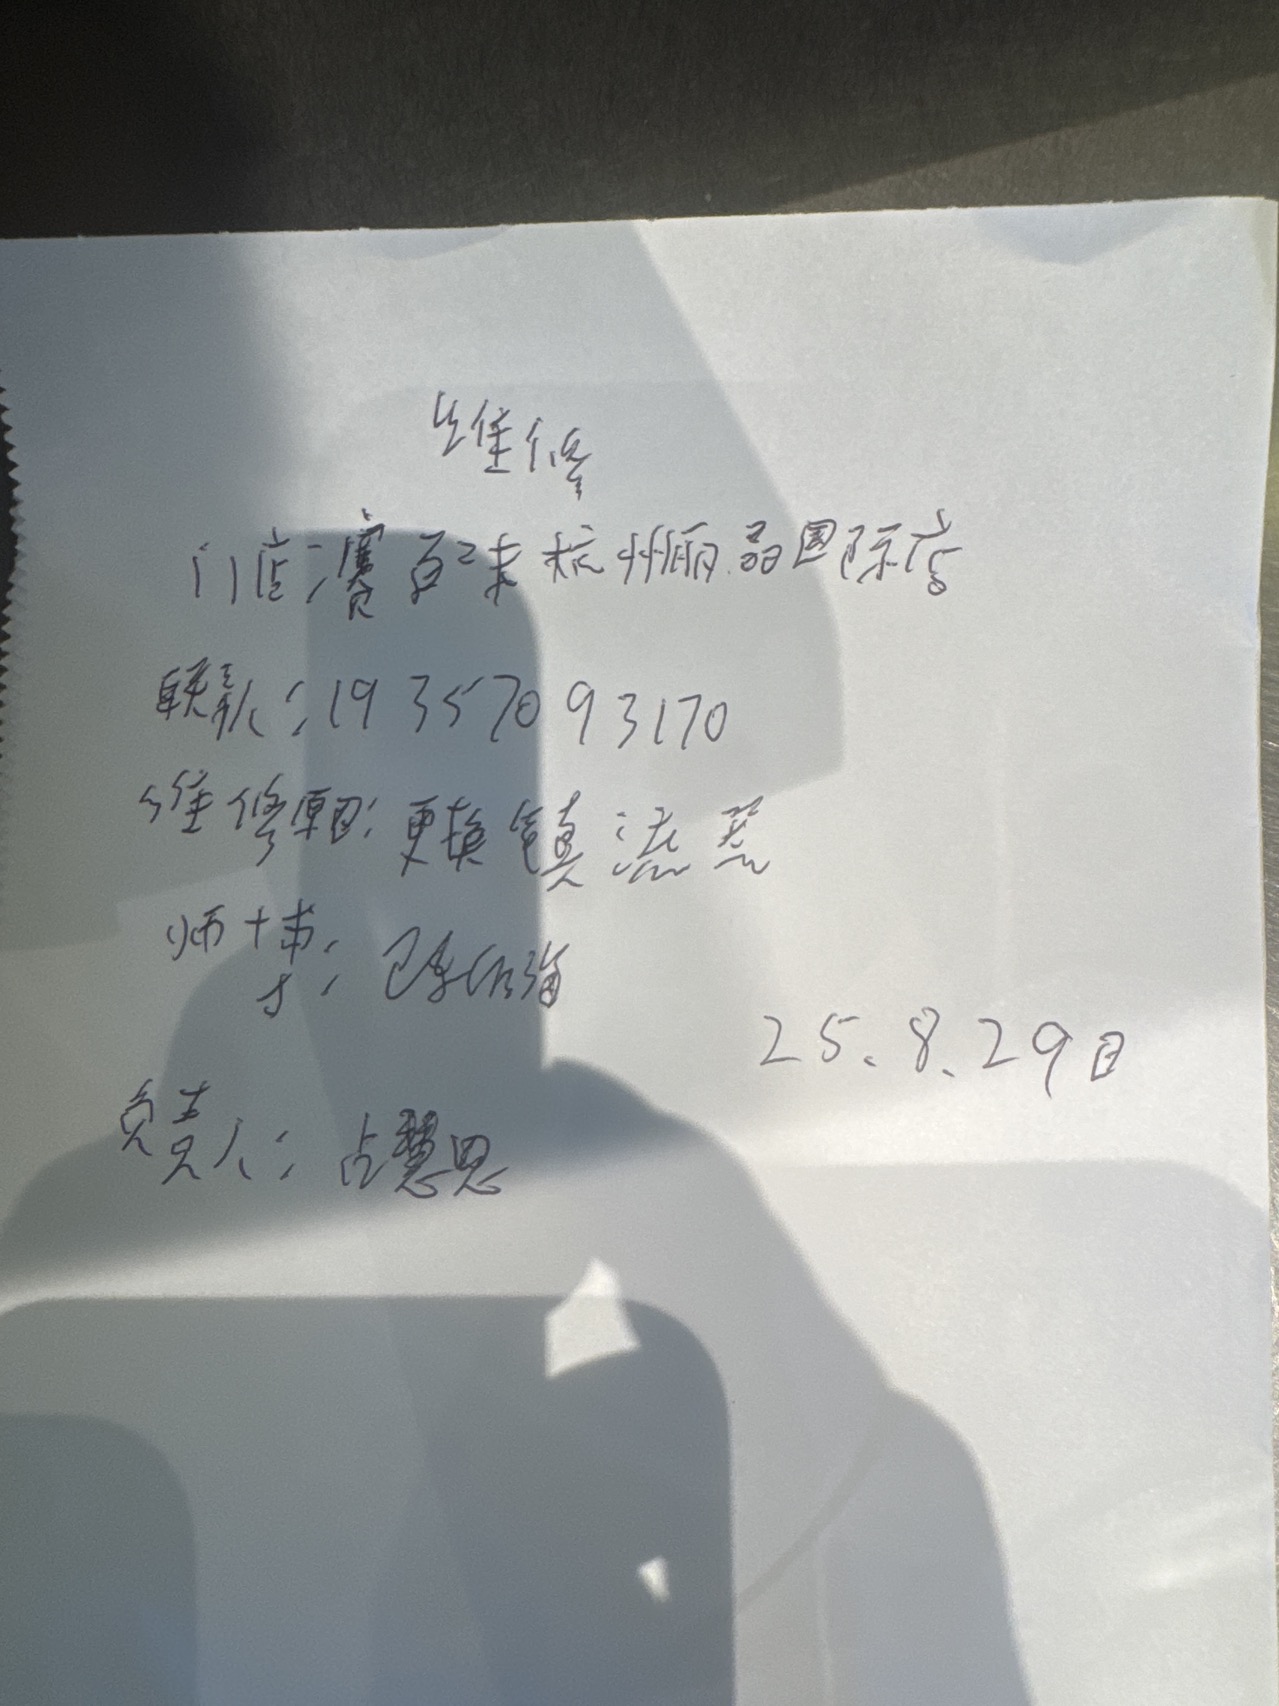 维修
门店:赛百味杭州丽晶国际店
联系人:19357093170
维修原因:更换镇流器
师傅:陈
25.8.29日
负责人:占慧思